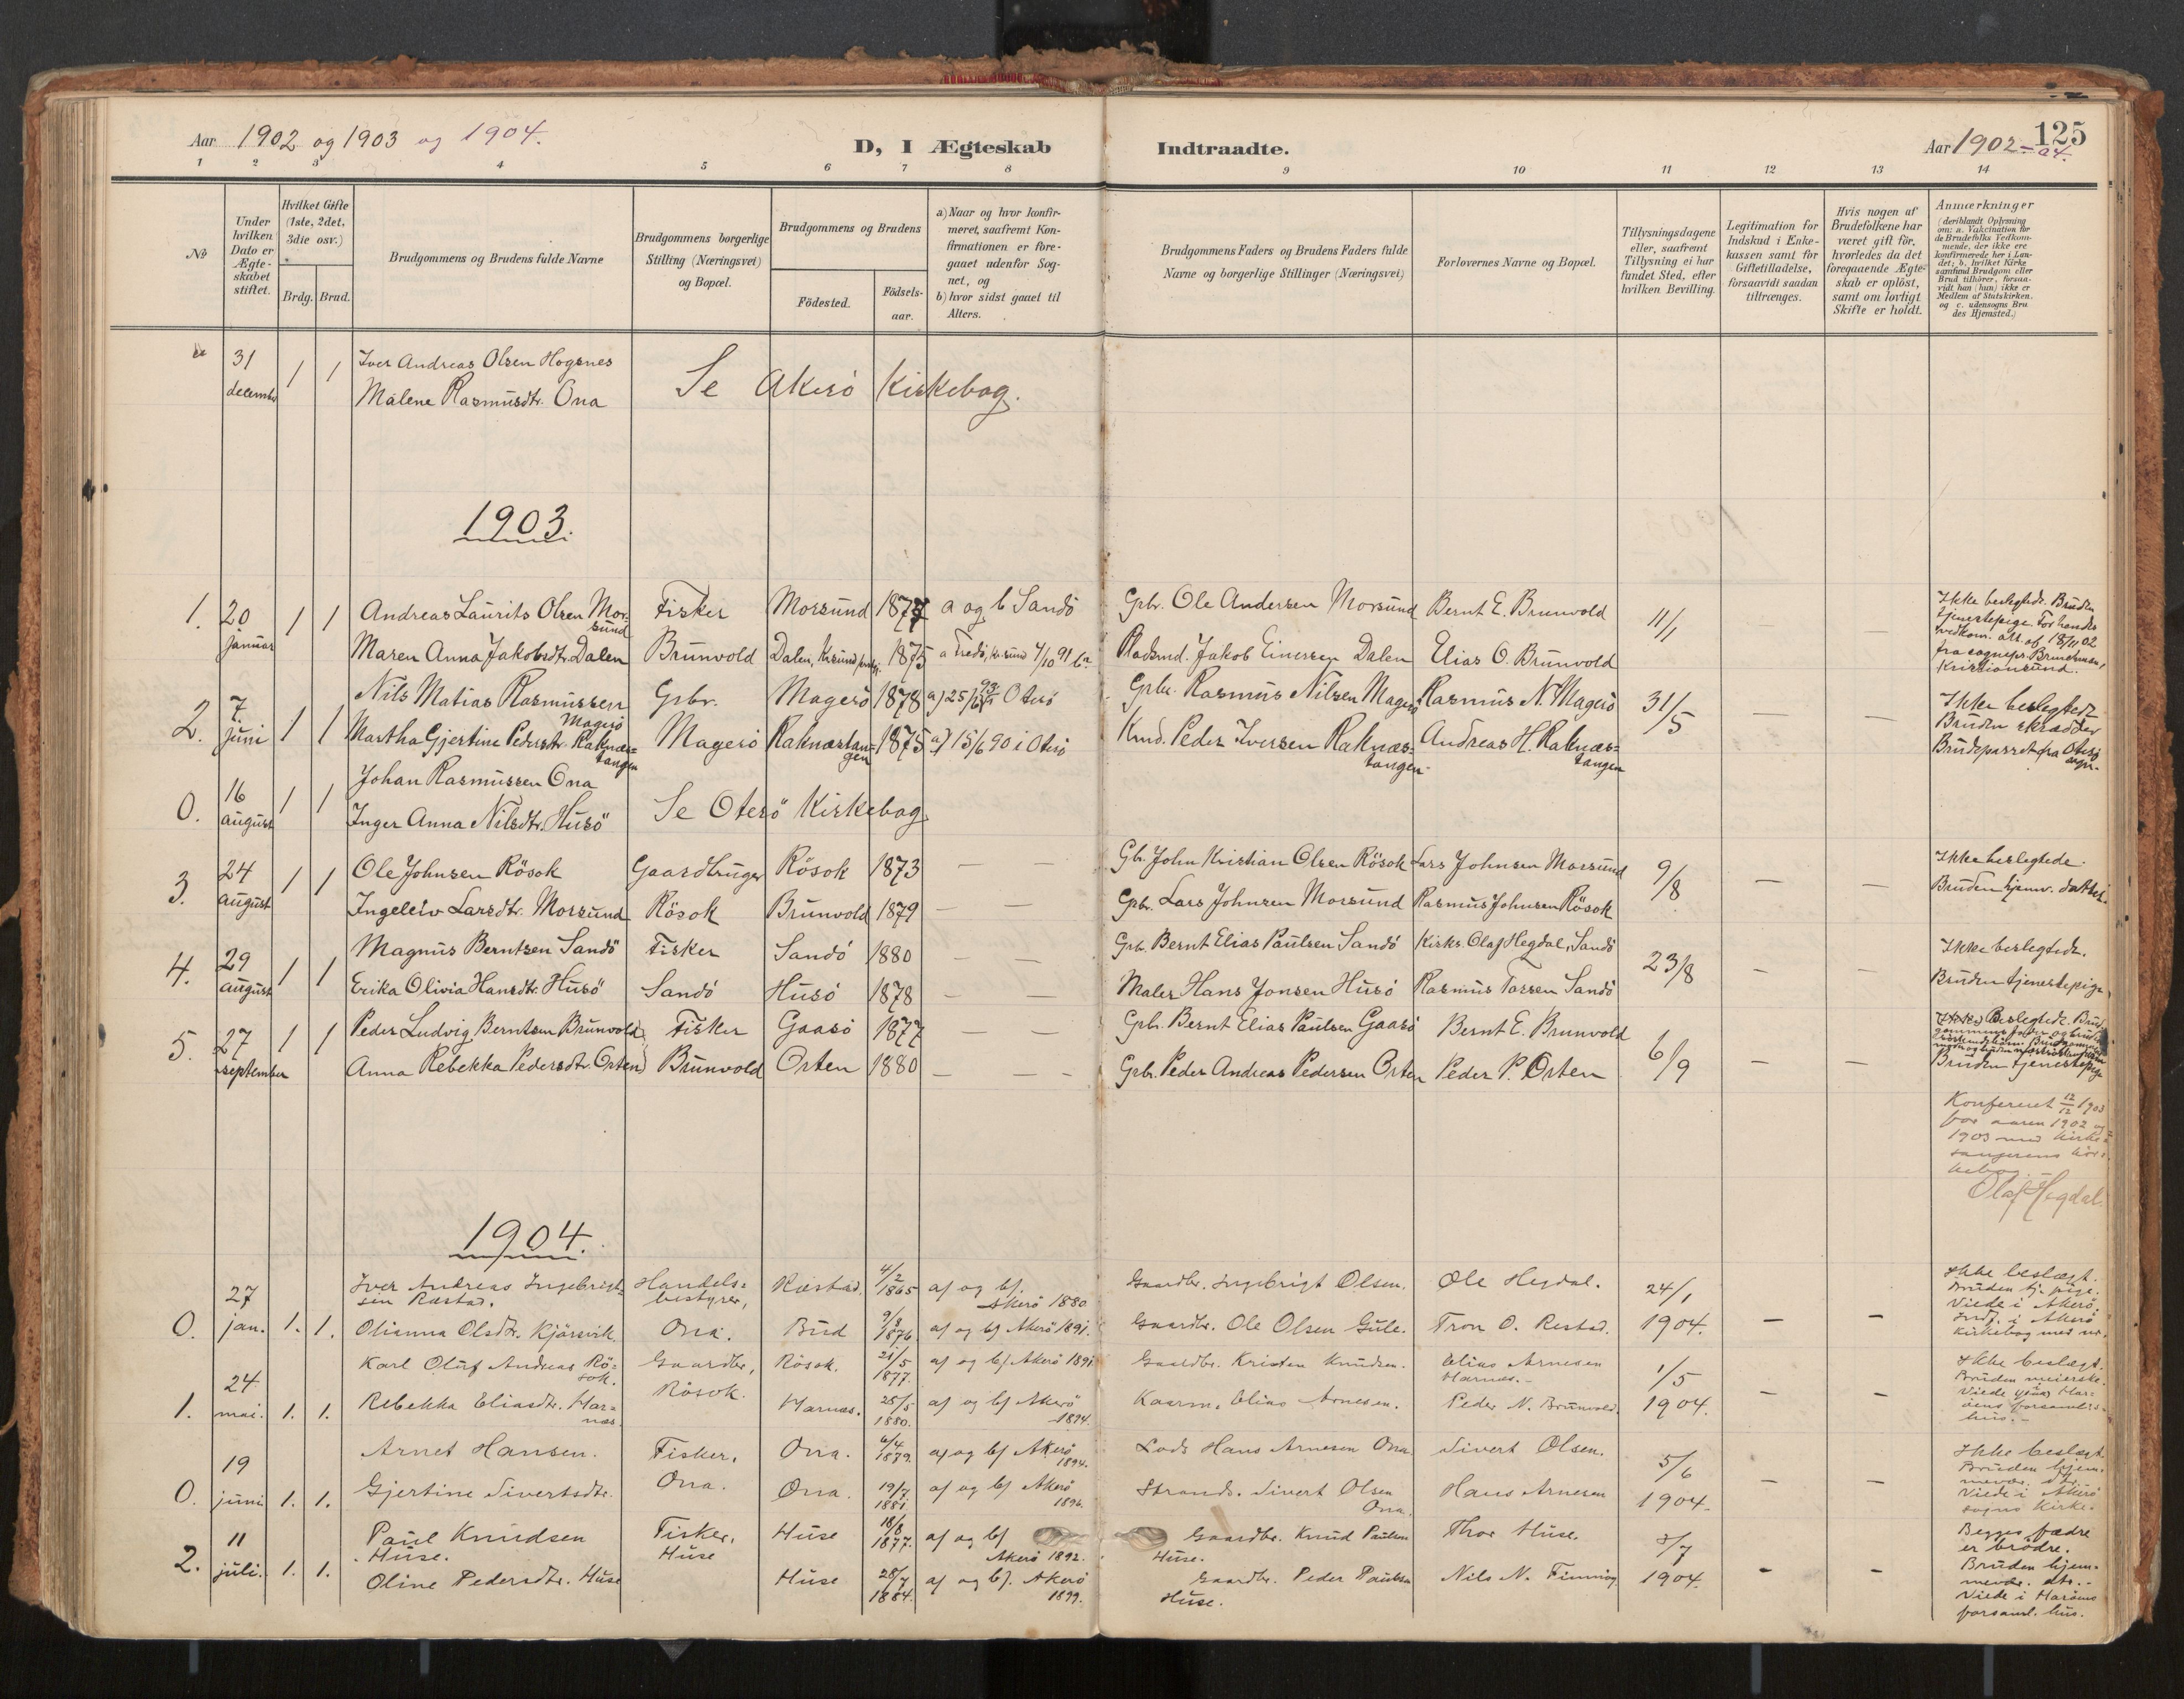 Aar 1902 og 1903 og 1904.
D, I Ægteskab
Indtraadte.
125
Aar 1902-04.
1 2 3 4 5 6 7 8 9 10 11 12 13 14
No
Under
hvilken
Dato er
Ægte-
skabet
stiftet.
Hvilket Gifte
(1ste, 2det,
3die osv.)
Brdg. Brud.
Brudgommens og Brudens fulde Navne
Brudgommens borgerlige
Stilling (Næringsvei)
og Bopæl.
Brudgommens og Brudens
Fødested.
Fødsels-
aar.
a) Naar og hvor konfir-
meret, saafremt Kon-
firmationen er fore-
gaaet udenfor Sog-
net, og
b) hvor sidst gaaet til
Alters.
Brudgommens Faders og Brudens Faders fulde
Navne og borgerlige Stillinger (Næringsvei)
Forlovernes Navne og Bopæl.
Tillysningsdagene
eller, saafremt
Tillysning ei har
fundet Sted, efter
hvilken Bevilling.
Legitimation for
Indskud i Enke-
kassen samt for
Giftetilladelse,
forsaavidt saadan
tiltrænges.
Hvis nogen af
Brudefolkene har
været gift før,
hvorledes da det
foregaaende Ægte-
skab er opløst,
samt om lovligt
Skifte er holdt.
Anmærkninger
(deriblandt Oplysning
om: a. Vakcination for
de Brudefolks Vedkom-
mende, der ikke ere
konfirmerede her i Lan-
det; b. hvilket Kirke
samfund Brudgom eller
Brud tilhører, forsaa-
vidt han (hun) ikke er
Medlem af Statskirken.
og c. udensogns Bru
des Hjemsted.)
31 december 1 1 Iver Andreas Olsen Hogsnes
Malene Rasmusdtr. Ona
Se Akerö Kirkebog.
1903.
1. 20 Januar 1 1 Andreas Laurits Olsen Morsund Fisker Morsund 1877 a og b Sandö Gpbr. Ole Andersen Morsund Bernt E. Brunvold 11/1 — —
Maren Anna Jakobsdtr. Dalen Brunvold Dalen, 1875 Pladsmd. Jakob Einersen Dalen Elias O. Brunvold
Ikke beslegtede. Bruden
tjenestepige. For hendes
vedkom. att. af 18/11 02
fra sognepr.
Kristiansund.
2. 7. juni 1 1 Nils Matias Rasmussen Magerö Gpbr. Magerö 1878 Oterö Gpbr. Rasmus Nilsen Magerö Rasmus N. Magerö 31/5 — —
Martha Gjertine Pedersdtr. Raknæstangen Magerö Raknæstangen 1875 a) 15/6 90 i Oterö Kmd. Peder Iversen Raknæstangen Andreas H. Raknæstangen
Ikke beslegtede
Bruden skrædder
fra Oterö
0. 16 august 1 1 Johan Rasmussen Ona
Inger Anna Nilsdtr. Husö
Se Oterö Kirkebog
3. 24 august 1 1 Ole Johnsen Rösok Gaardbruger Rösok 1873 — — Gb. John Kristian Olsen Rösok Lars Johnsen Morsund 9/8 — —
Ingeleiv Larsdtr. Morsund Rösok Brunvold 1879 — — Gpbr. Lars Johnsen Morsund Rasmus Johnsen Rösok
Ikke beslegtede.
Bruden hjemv. datter.
4. 29 august 1 1 Magnus Berntsen Sandö Fisker Sandö 1880 — — Gpb Bernt Elias Paulsen Sandö Kirks. Olaf Hegdal, Sandö 23/8 — —
Erika Olivia Hansdtr. Husö Sandö Husö 1878 — — Maler Hans Jonsen Husö Rasmus Tossen Sandö
Ikke beslegtede.
Bruden tjenestepige.
5. 27 september 1 1 Peder Ludvig Berntsen Brunvold Fisker Gaasö 1877 — — Gpb. Bernt Elias Paulsen Gaasö Bernt E. Brunvold 6/9 — —
Anna Rebekka Pedersdtr. Orten Brunvold Orten 1880 — — Gpb. Peder Andreas Pedersen Orten Peder P. Orten
Beslegtede.
Bruden tjenestepige
Konfereret 12/12 1903
for aaren 1902 og
1903 med kirke-
sangerens
Olaf Hegdal.
1904.
0. 27 jan. 1. 1. Iver Andreas Ingebrigtsen Ræstad. Handelsbestyrer, Ræstad. 4/2 1865 a/ og b/. Akerö 1880 Gaardbr. Ingebrigt Olsen. Ole Hegdal. 24/1 1904. - -
Olianna Olsdtr. Kjörsvik. Ona. Bud 1876 a/ og b/ Akerö 1891. Gaardbr. Ole Olsen Gule. Tron O. Restad.
Ikke beslægt.
Bruden tj. pige.
Viede i Akerö.
Indf. i Akerö
kirkebog med nr.
1. 24 mai. 1. 1. Karl Oluf Andreas Rösok. Gaardbr., Rösok. 21/5 1877. a/ og b/ Akerö 1891. Gaardbr. Kristen Knudsen. Elias Arnesen Harnæs. 1/5 1904. - -
Rebekka Eliasdtr. Harnæs. Rösok. Harnæs. 28/5 1880. a/ og b/ Akerö 1894. Kaarm. Elias Arnesen. Peder N. Brunvold.
Ikke beslægt.
Bruden meierske.
Viede
forsamlings-
hus.
0. 19 juni 1. 1. Arnet Hansen. Fisker, Ona. 6/4 1879. a/ og b/ Akerö 1894. Lods Hans Arnesen Ona Sivert Olsen. 5/6 1904. - -
Gjertine Sivertsdtr. Ona. Ona. 19/7 1881. a/ og b/ Akerö 1896. Strands. Sivert Olsen Ona. Hans Arnesen
Ikke beslægt.
Bruden hjem-
Viede i Akerö
sogns kirke.
2. 11 juli. 1. 1. Paul Knudsen Huse. Fisker, Huse Huse 18/8 1877. a/ og b/ Akerö 1892. Gaardbr. Knud Paulsen Huse. Thor Huse. 3/7 1904. - -
Oline Pedersdtr. Huse Huse 28/7 1884. a/ og b/. Akerö 1899. Gaardbr. Peder Paulsen Huse. Nils N.
Begges fædre
er brödre.
Bruden hjem-
Viede i Haröens
forsaml. hus.